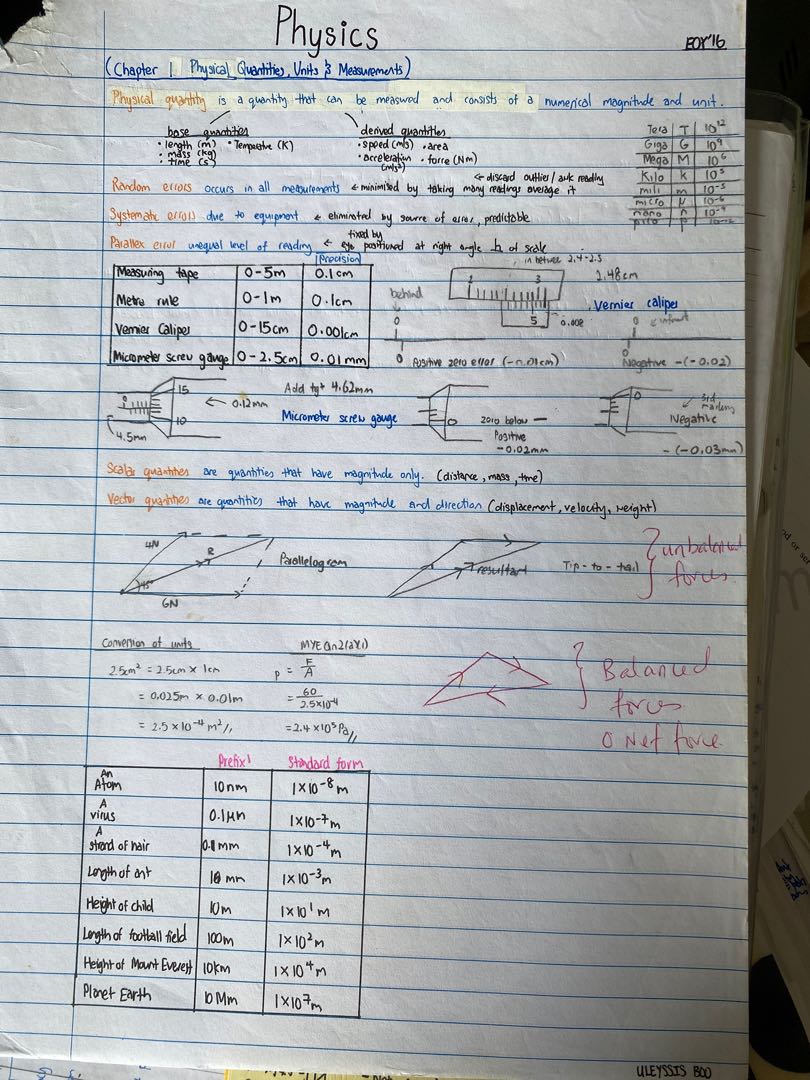 Physics
EOY'16
(Chapter 1 Physical Quantities, Units & Measurements)
Physical quantity is a quantity that can be measured and consists of a numerical magnitude and unit.
base quantities
• length (m) • Temperature (K)
• mass (kg)
• time (s)
derived quantities
• speed (m/s) • area
• acceleration (m/s²) • force (Nm)
Tera T 10¹²
Giga G 10⁹
Mega M 10⁶
Kilo k 10³
mili m 10⁻³
micro μ 10⁻⁶
nano n 10⁻⁹
pico p 10⁻¹²
← discard outlier / awk reading
Random errors occurs in all measurements ← minimised by taking many readings average it
Systematic errors due to equipment ← eliminated by source of error, predictable
Parallex error unequal level of reading ← fixed by eye positioned at right angle of scale
Precision
Measuring tape 0-5m 0.1cm
Metre rule 0-1m 0.1cm
Vernier Caliper 0-15cm 0.001cm
Micrometer screw gauge 0-2.5cm 0.01mm
in betwee 2.4-2.5
2 3
2.48cm
5
0.008
Vernier caliper
behind
0
0
Positive zero error (-0.01cm)
0
0
Negative -(-0.02)
15
0
10
4.5mm
← 0.12mm
Add tgt 4.62mm
Micrometer screw gauge
0
zero below —
Positive
-0.02mm
0
3rd marking
Negative
-(-0.03mm)
Scalar quantities are quantities that have magnitude only. (distance, mass, time)
Vector quantities are quantities that have magnitude and direction (displacement, velocity, weight)
4N
R
45°
6N
Parallelogram
resultant
Tip-to-tail
unbalanced
forces
Conversion of units
2.5cm² = 2.5cm × 1cm
= 0.025m × 0.01m
= 2.5×10⁻⁴ m²//
P = F/A
= 60/2.5×10⁻⁴
= 2.4×10⁵ Pa//
Balanced
forces
0 Net force
Prefix Standard form
An Atom 10nm 1×10⁻⁸ m
A virus 0.1μm 1×10⁻⁷ m
A strand of hair 0.1mm 1×10⁻⁴ m
Length of ant 10 mm 1×10⁻³ m
Height of child 10m 1×10¹ m
Length of football field 100m 1×10² m
Height of Mount Everest 10km 1×10⁴ m
Planet Earth 10Mm 1×10⁷ m
ULEYSSIS BOO